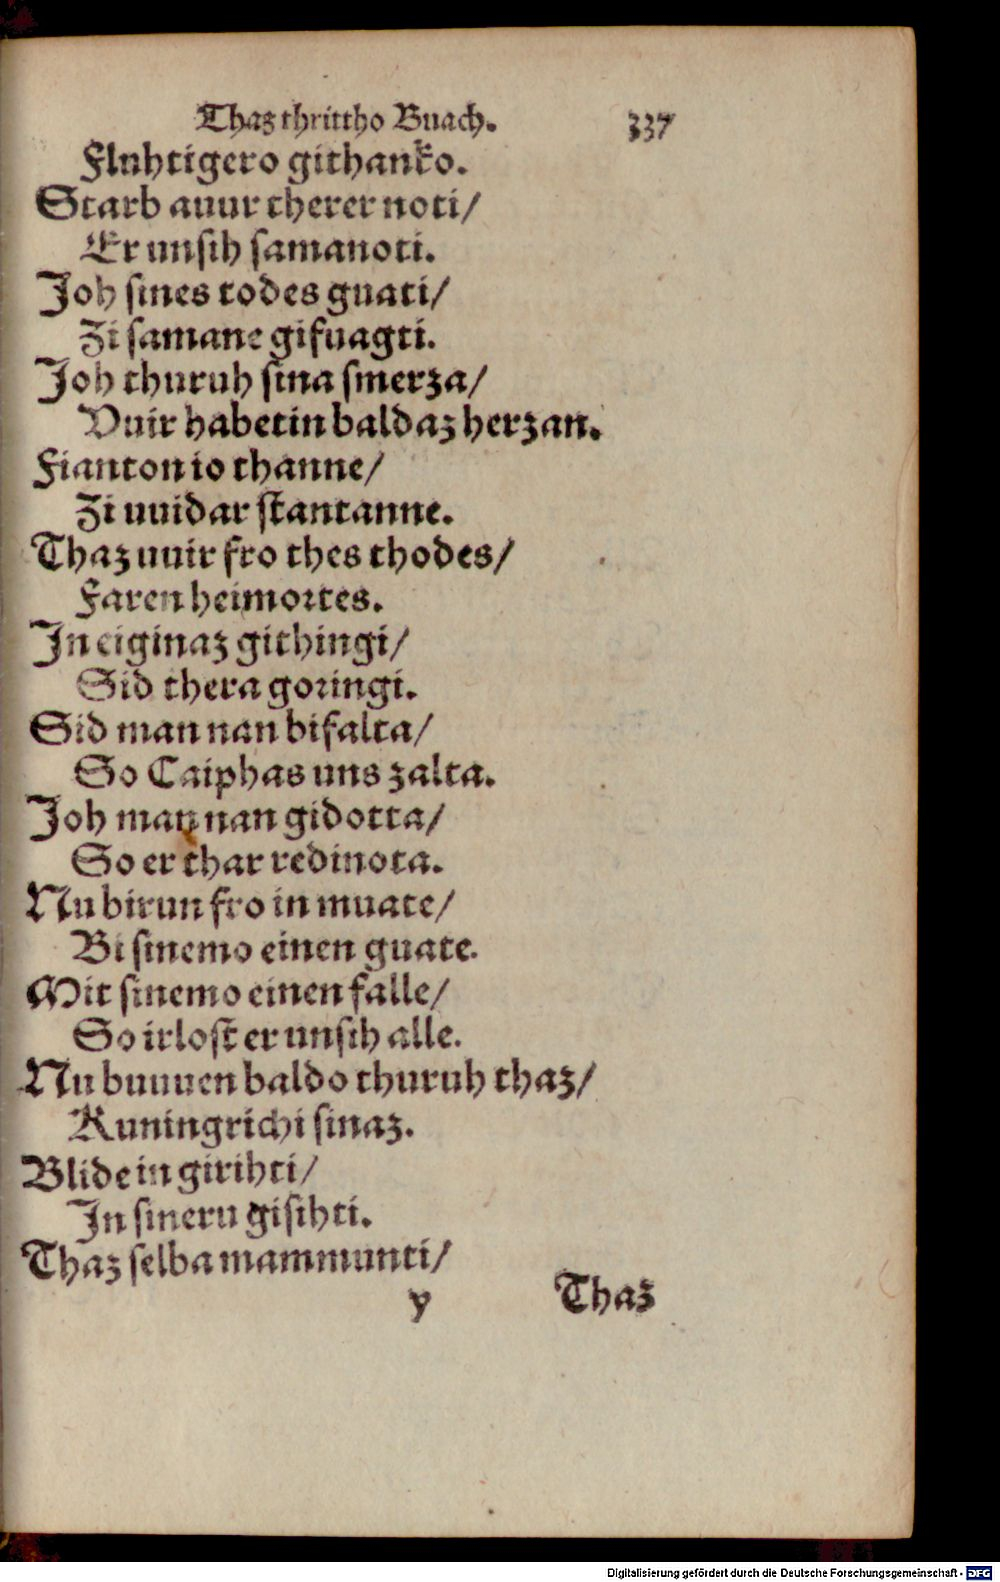 Thaz thrittho Buach. 337
Fluhtigero githanko.
Starb auur therer noti/
Er unsih samanoti.
Joh sines todes guati/
Zi samane gifuagti.
Joh thuruh sina smerza/
Vuir habetin baldaz herzan.
Fianton io thanne/
Zi uuidar stantanne.
Thaz uuir fro thes thodes/
Faren heimortes.
In eiginaz githingi/
Sid thera goringi.
Sid man nan bifalta/
So Caiphas uns zalta.
Joh man nan gidotta/
So er thar redinota.
Nu birun fro in muate/
Bi sinemo einen guate.
Mit sinemo einen falle/
So irlost er unsih alle.
Nu buuuen baldo thuruh thaz/
Kuningrichi sinaz.
Blide in girihti/
In sineru gisihti.
Thaz selba mammunti/
y Thaz
Digitalisierung gefördert durch die Deutsche Forschungsgemeinschaft - DFG